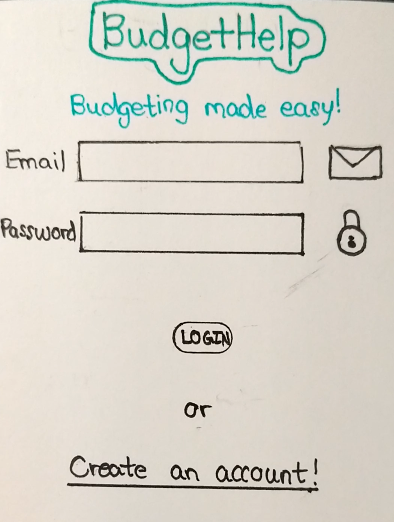 BudgetHelp
Budgeting made easy!
Email
Password
LOGIN
or
Create an account!